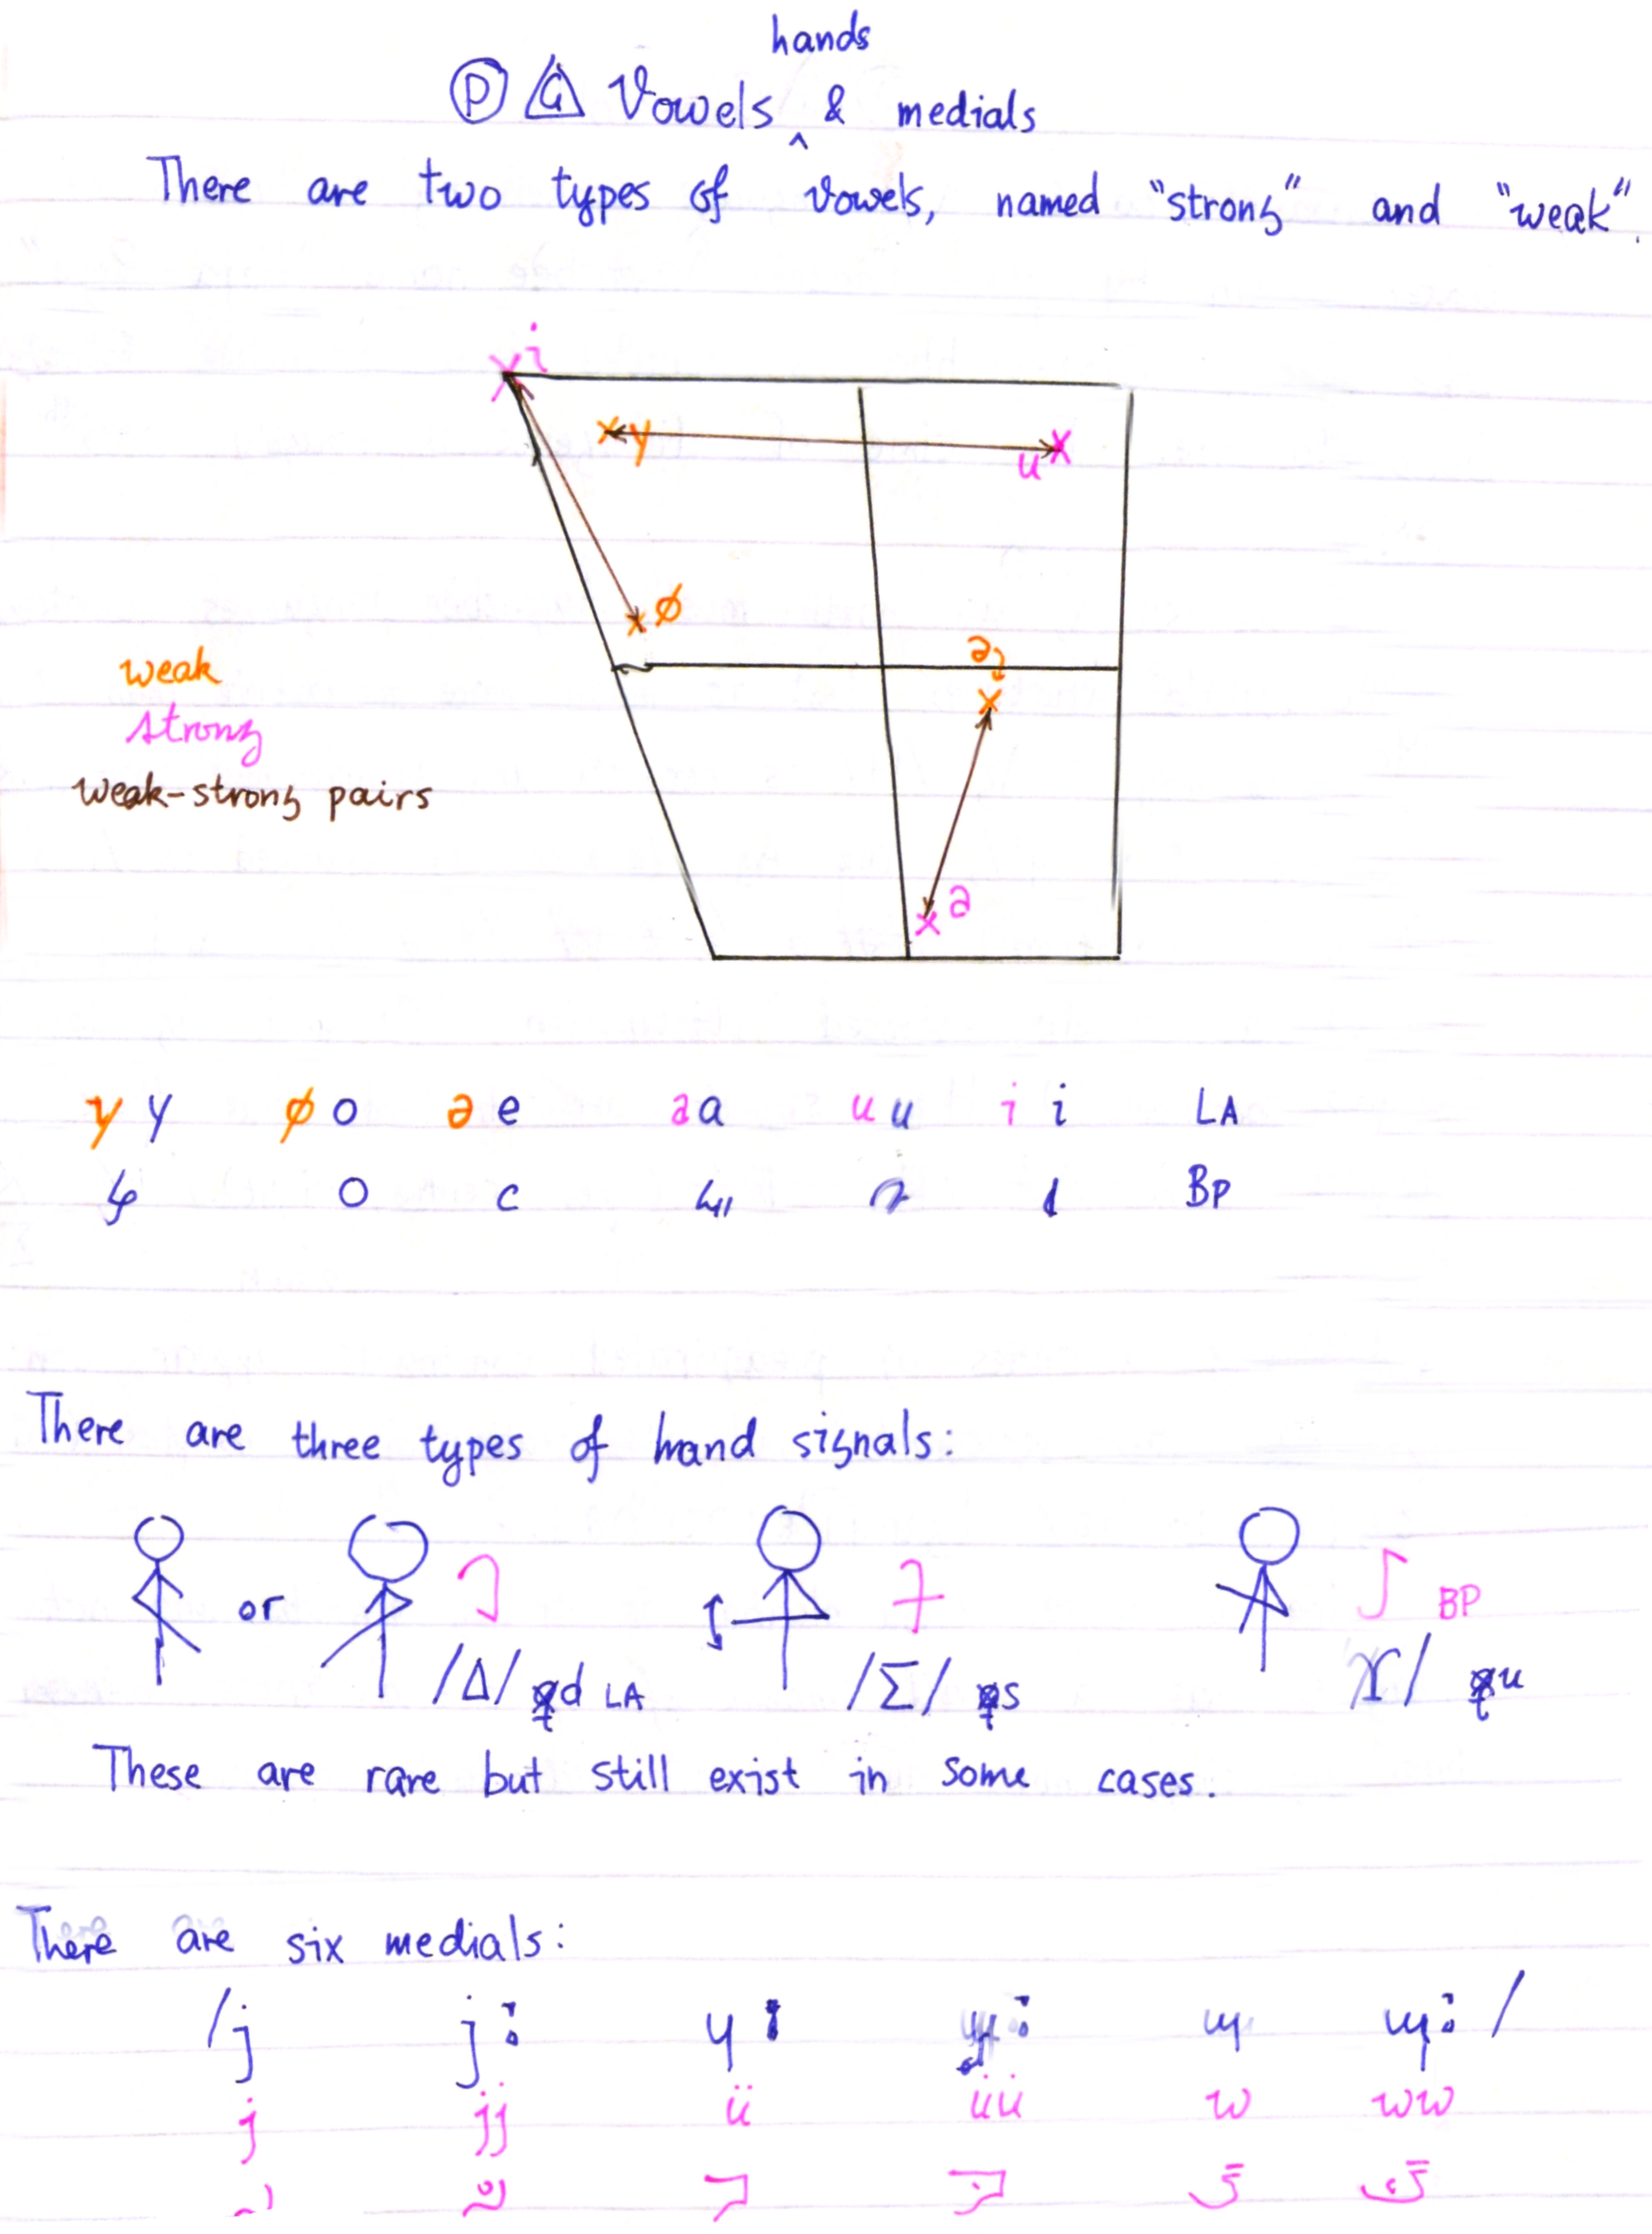 hands
Ⓟ G Vowels ^ & medials
There are two types of vowels, named "strong" and "weak".
i
y
u
ø
ə
weak
strong
weak-strong pairs
a
y y ø o ə e a a u u i i LA
O c BP
There are three types of hand signals:
or
BP
/Δ/ qd LA /Σ/ qs ϒ/ qu
These are rare but still exist in some cases.
There are six medials:
/j j: ɥ ɥ: ɰ ɰ: /
j jj ü üü w ww